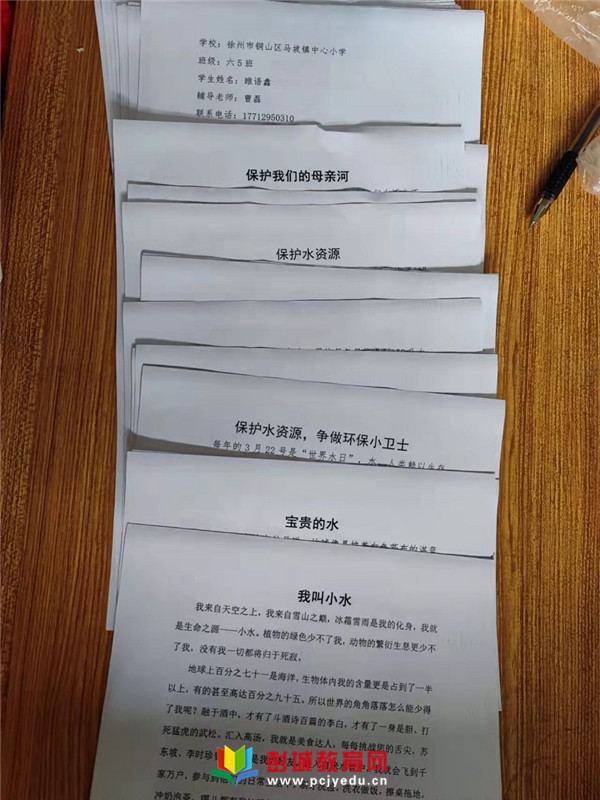 学校：徐州市铜山区马坡镇中心小学
班级：六5班
学生姓名：睢语鑫
辅导老师：曹磊
联系电话：17712950310
保护我们的母亲河
保护水资源
保护水资源，争做环保小卫士
每年的3月22号是“世界水日”，水，人类赖以生存
宝贵的水
我叫小水
我来自天空之上，我来自雪山之巅，冰霜雪雨是我的化身，我就
是生命之源——小水。植物的绿色少不了我，动物的繁衍生息更少不
了我，没有我一切都将归于死寂。
地球上百分之七十一是海洋，生物体内我的含量更是占到了一半
以上，有的甚至高达百分之九十五。所以世界的角角落落怎么能少得
了我呢？融于酒中，才有了斗酒诗百篇的李白，才有了一身是胆、打
死猛虎的武松。汇入高汤，我就是美食达人，每每挑战您的舌尖、苏
东坡、李时珍
是我的好友
我就会飞到千
家万户，参与到
的日常
洗衣做饭，擦桌拖地，
冲奶泡茶
彭城教育网
www.pcjyedu.cn